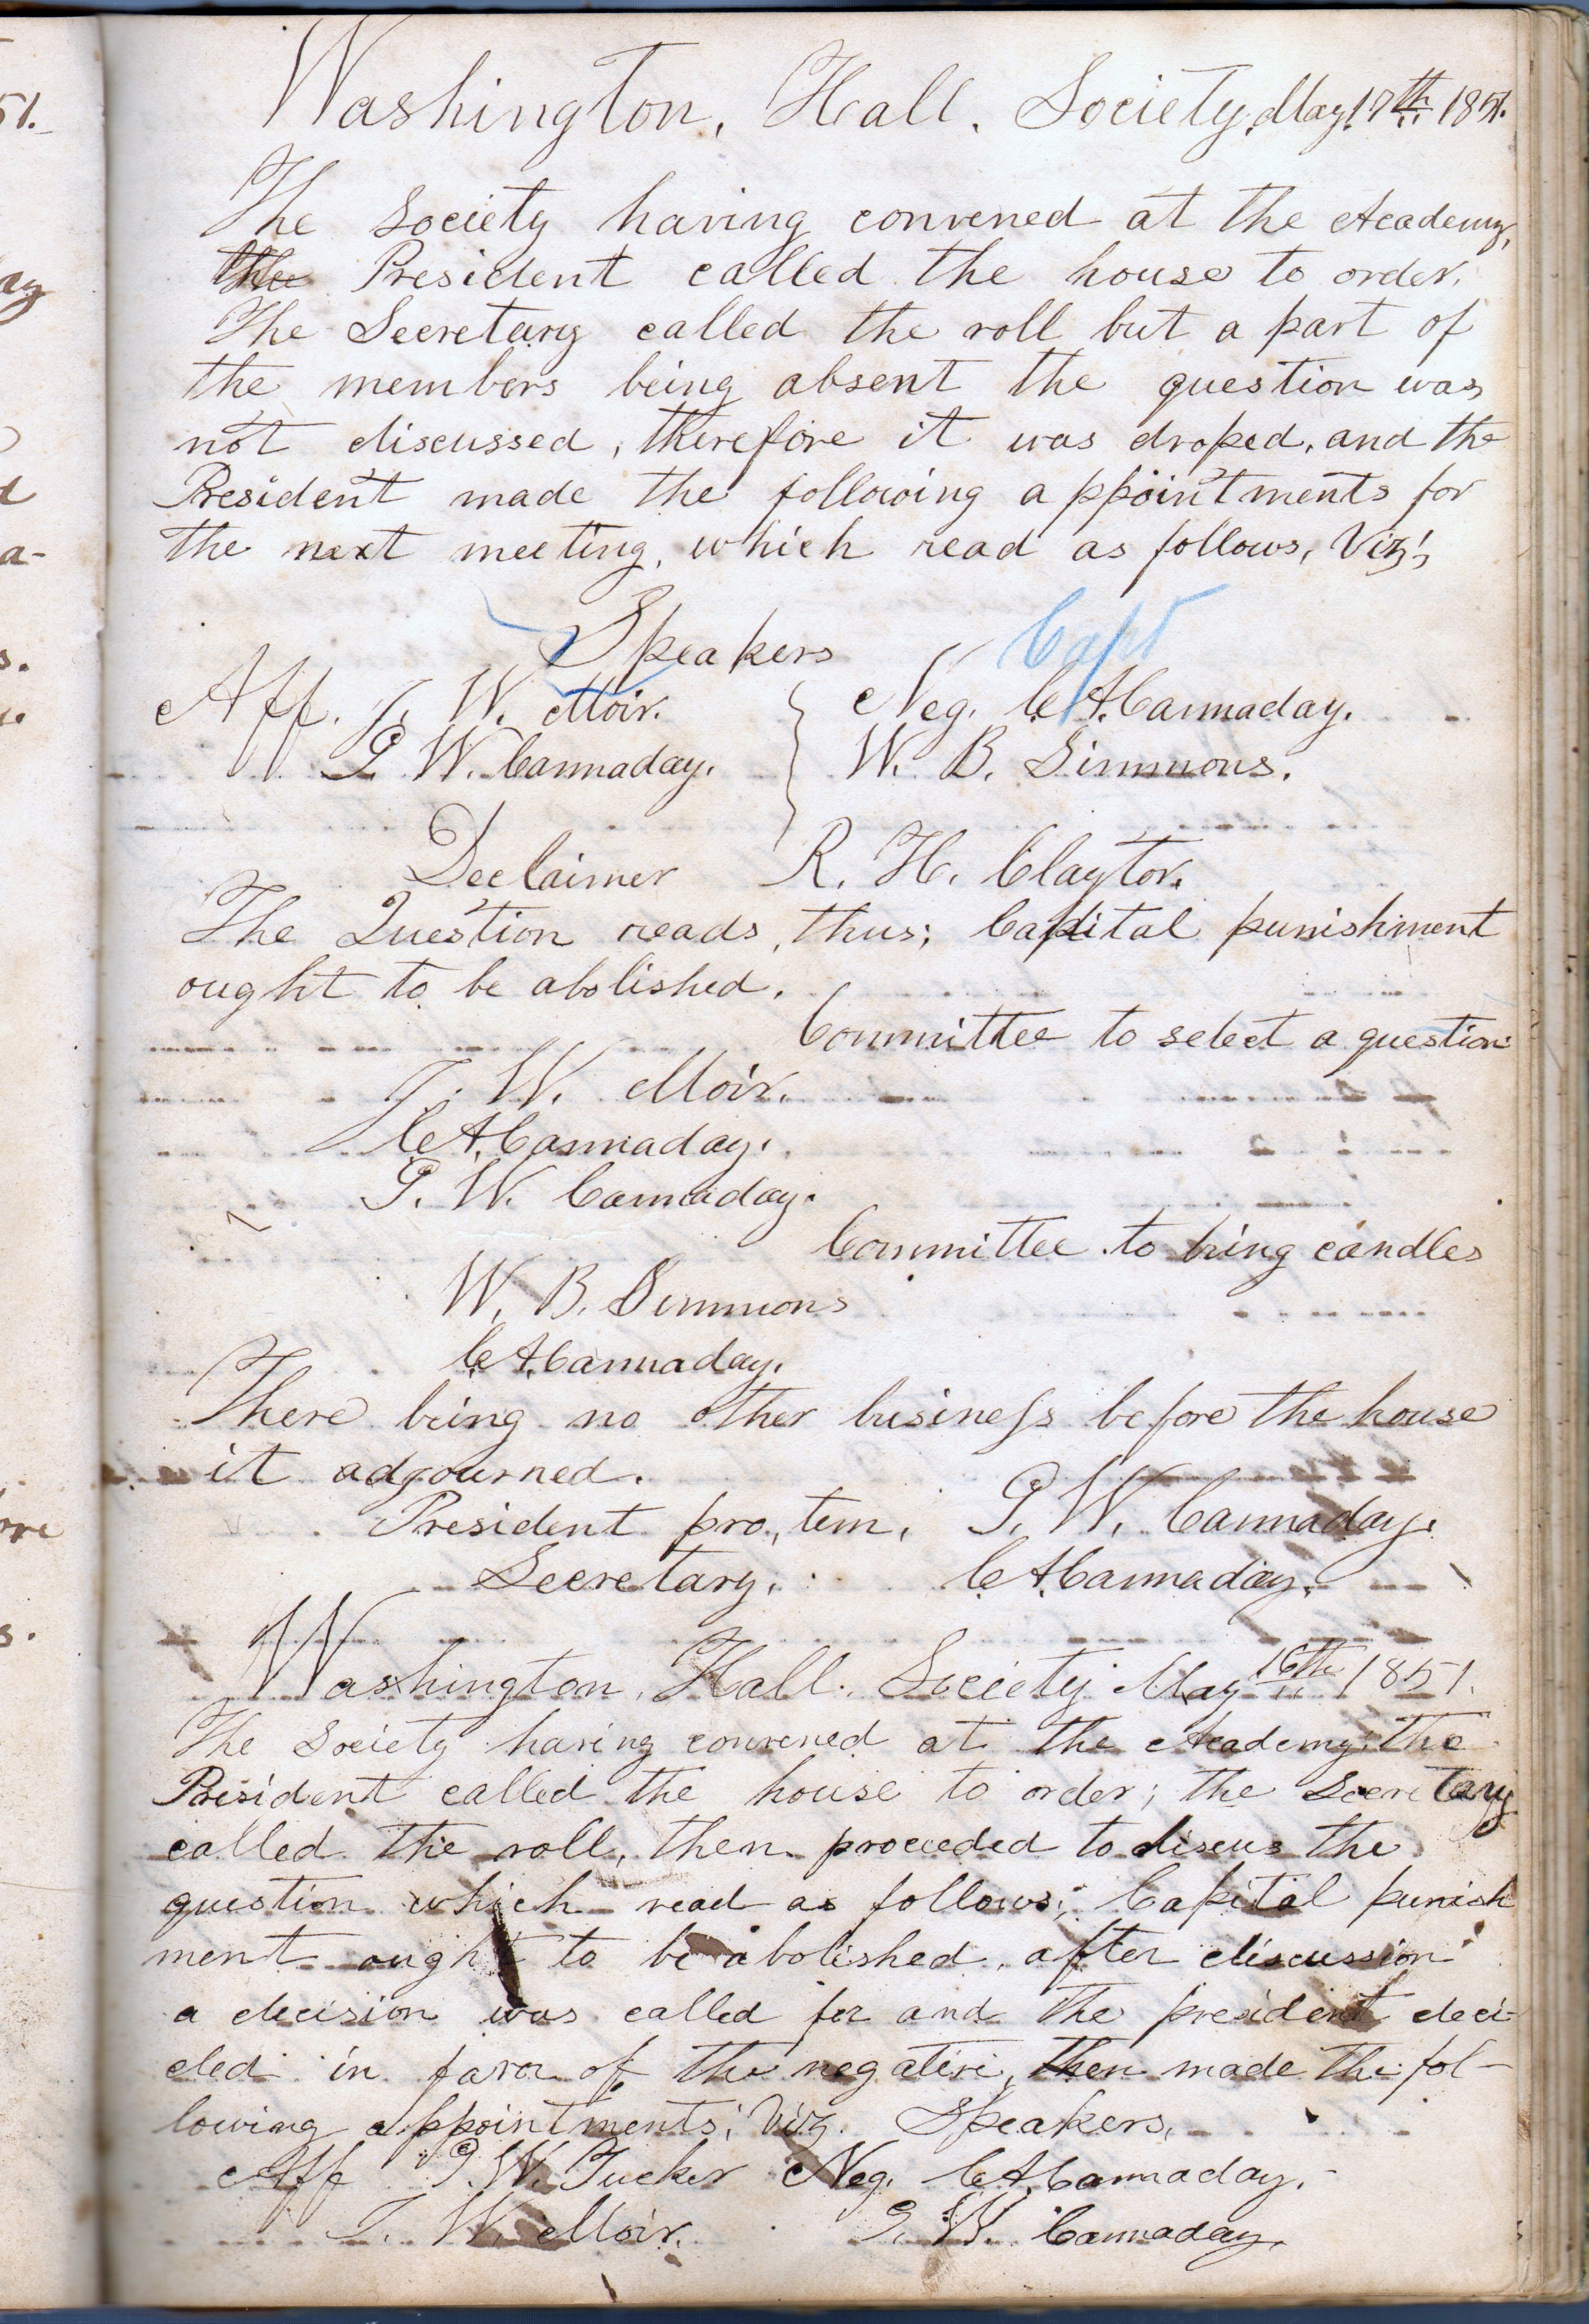 Washington, Hall, Society, May 17th 1851.
The Society having convened at the Academy,
the President called the house to order.
The Secretary called the roll but a part of
the members being absent the question was
not discussed, therefore it was droped, and the
President made the following appointments for
the next meeting, which read as follows, Viz;
Speakers
Capt
Aff. J. W. Moir. Neg. C. A. Cannaday.
P. W. Cannaday. W. B. Simmons.
Declaimer R. H. Claytor.
The Question reads, thus; Capital punishment
ought to be abolished.
Committee to select a question
J. W. Moir.
C. A. Cannaday.
P. W. Cannaday.
Committee to bring candles
W. B. Simmons
C. A. Cannaday.
There being no other business before the house
it adjourned.
President pro, tem, P. W. Cannaday.
Secretary, C. A. Cannaday.
Washington, Hall. Society May 16th 1851.
The Society having convened at the Academy; the
President called the house to order; the Secretary
called the roll, then proceeded to discus the
question which read as follows; Capital punish
ment ought to be abolished. after discussion
a decision was called for and the president deci-
ded in favor of the negative, then made the fol-
lowing appointments; Viz. Speakers,
Aff P. W. Tucker Neg. C. A. Cannaday.
J. W. Moir. P. W. Cannaday.
51.
ay
d
a-
s.
s.